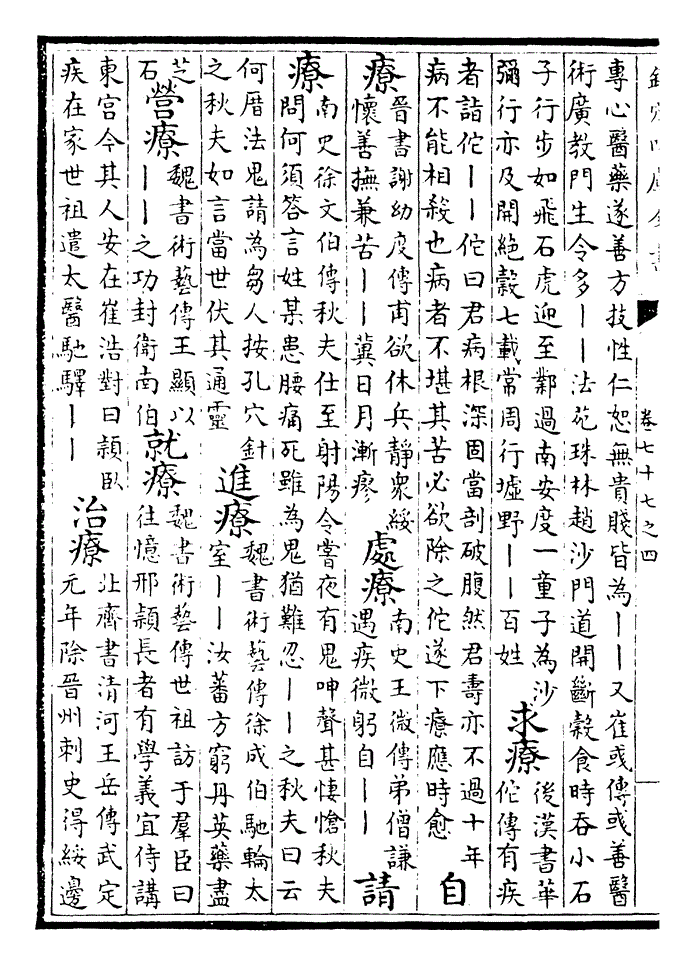 欽定四庫全書
卷七十七之四
專心醫藥遂善方技性仁恕無貴賤皆為｜｜又崔彧傳彧善醫
術廣教門生令多｜｜法苑珠林趙沙門道開斷穀食時吞小石
子行步如飛石虎迎至鄴過南安度一童子為沙
彌行亦及開絶穀七載常周行墟野｜｜百姓
求療
後漢書華
佗傳有疾
者詣佗｜｜佗曰君病根深固當剖破腹然君壽亦不過十年
病不能相殺也病者不堪其苦必欲除之佗遂下療應時愈
自
療
晉書謝幼度傳甫欲休兵靜衆綏
懷善撫兼苦｜｜冀日月漸瘳
處療
南史王微傳弟僧謙
遇疾微躬自｜｜
請
療
南史徐文伯傳秋夫仕至射陽令嘗夜有鬼呻聲甚悽愴秋夫
問何須答言姓某患腰痛死雖為鬼猶難忍｜｜之秋夫曰云
何厝法鬼請為芻人按孔穴針
之秋夫如言當世伏其通靈
進療
魏書術藝傳徐成伯馳輪太
室｜｜汝蕃方窮丹英藥盡
芝
石
營療
魏書術藝傳王顯以
｜｜之功封衛南伯
就療
魏書術藝傳世祖訪于羣臣曰
往憶邢頴長者有學義宜侍講
東宫今其人安在崔浩對曰頴臥
疾在家世祖遣太醫馳驛｜｜
治療
北齊書清河王岳傳武定
元年除晉州刺史得綏邊